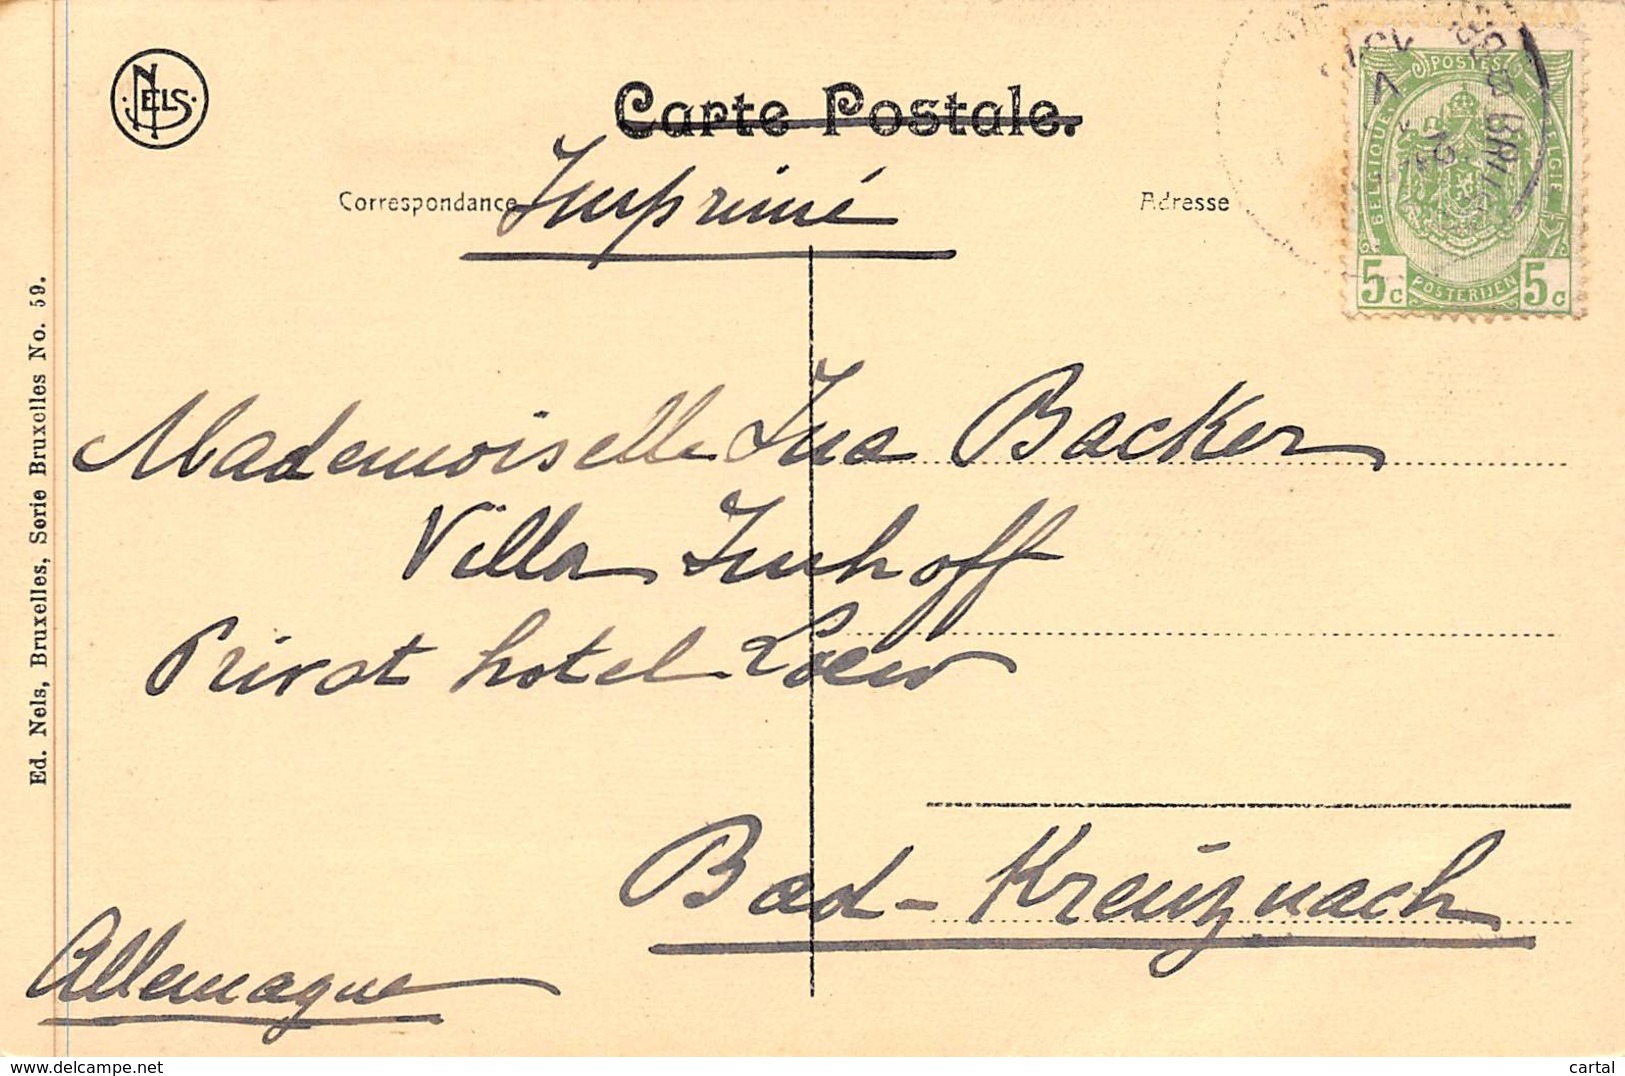 NELS
Carte Postale.
Imprimé
Correspondance
Adresse
POSTES
BELGIQUE
BELGIË
POSTERIJEN
5c 5c
Mademoiselle Ina Backer
Villa Imhoff
Privat hotel Loew
Bad-Kreuznach
Allemagne
Ed. Nels, Bruxelles, Serie Bruxelles No. 59.
delcampe.net
cartal